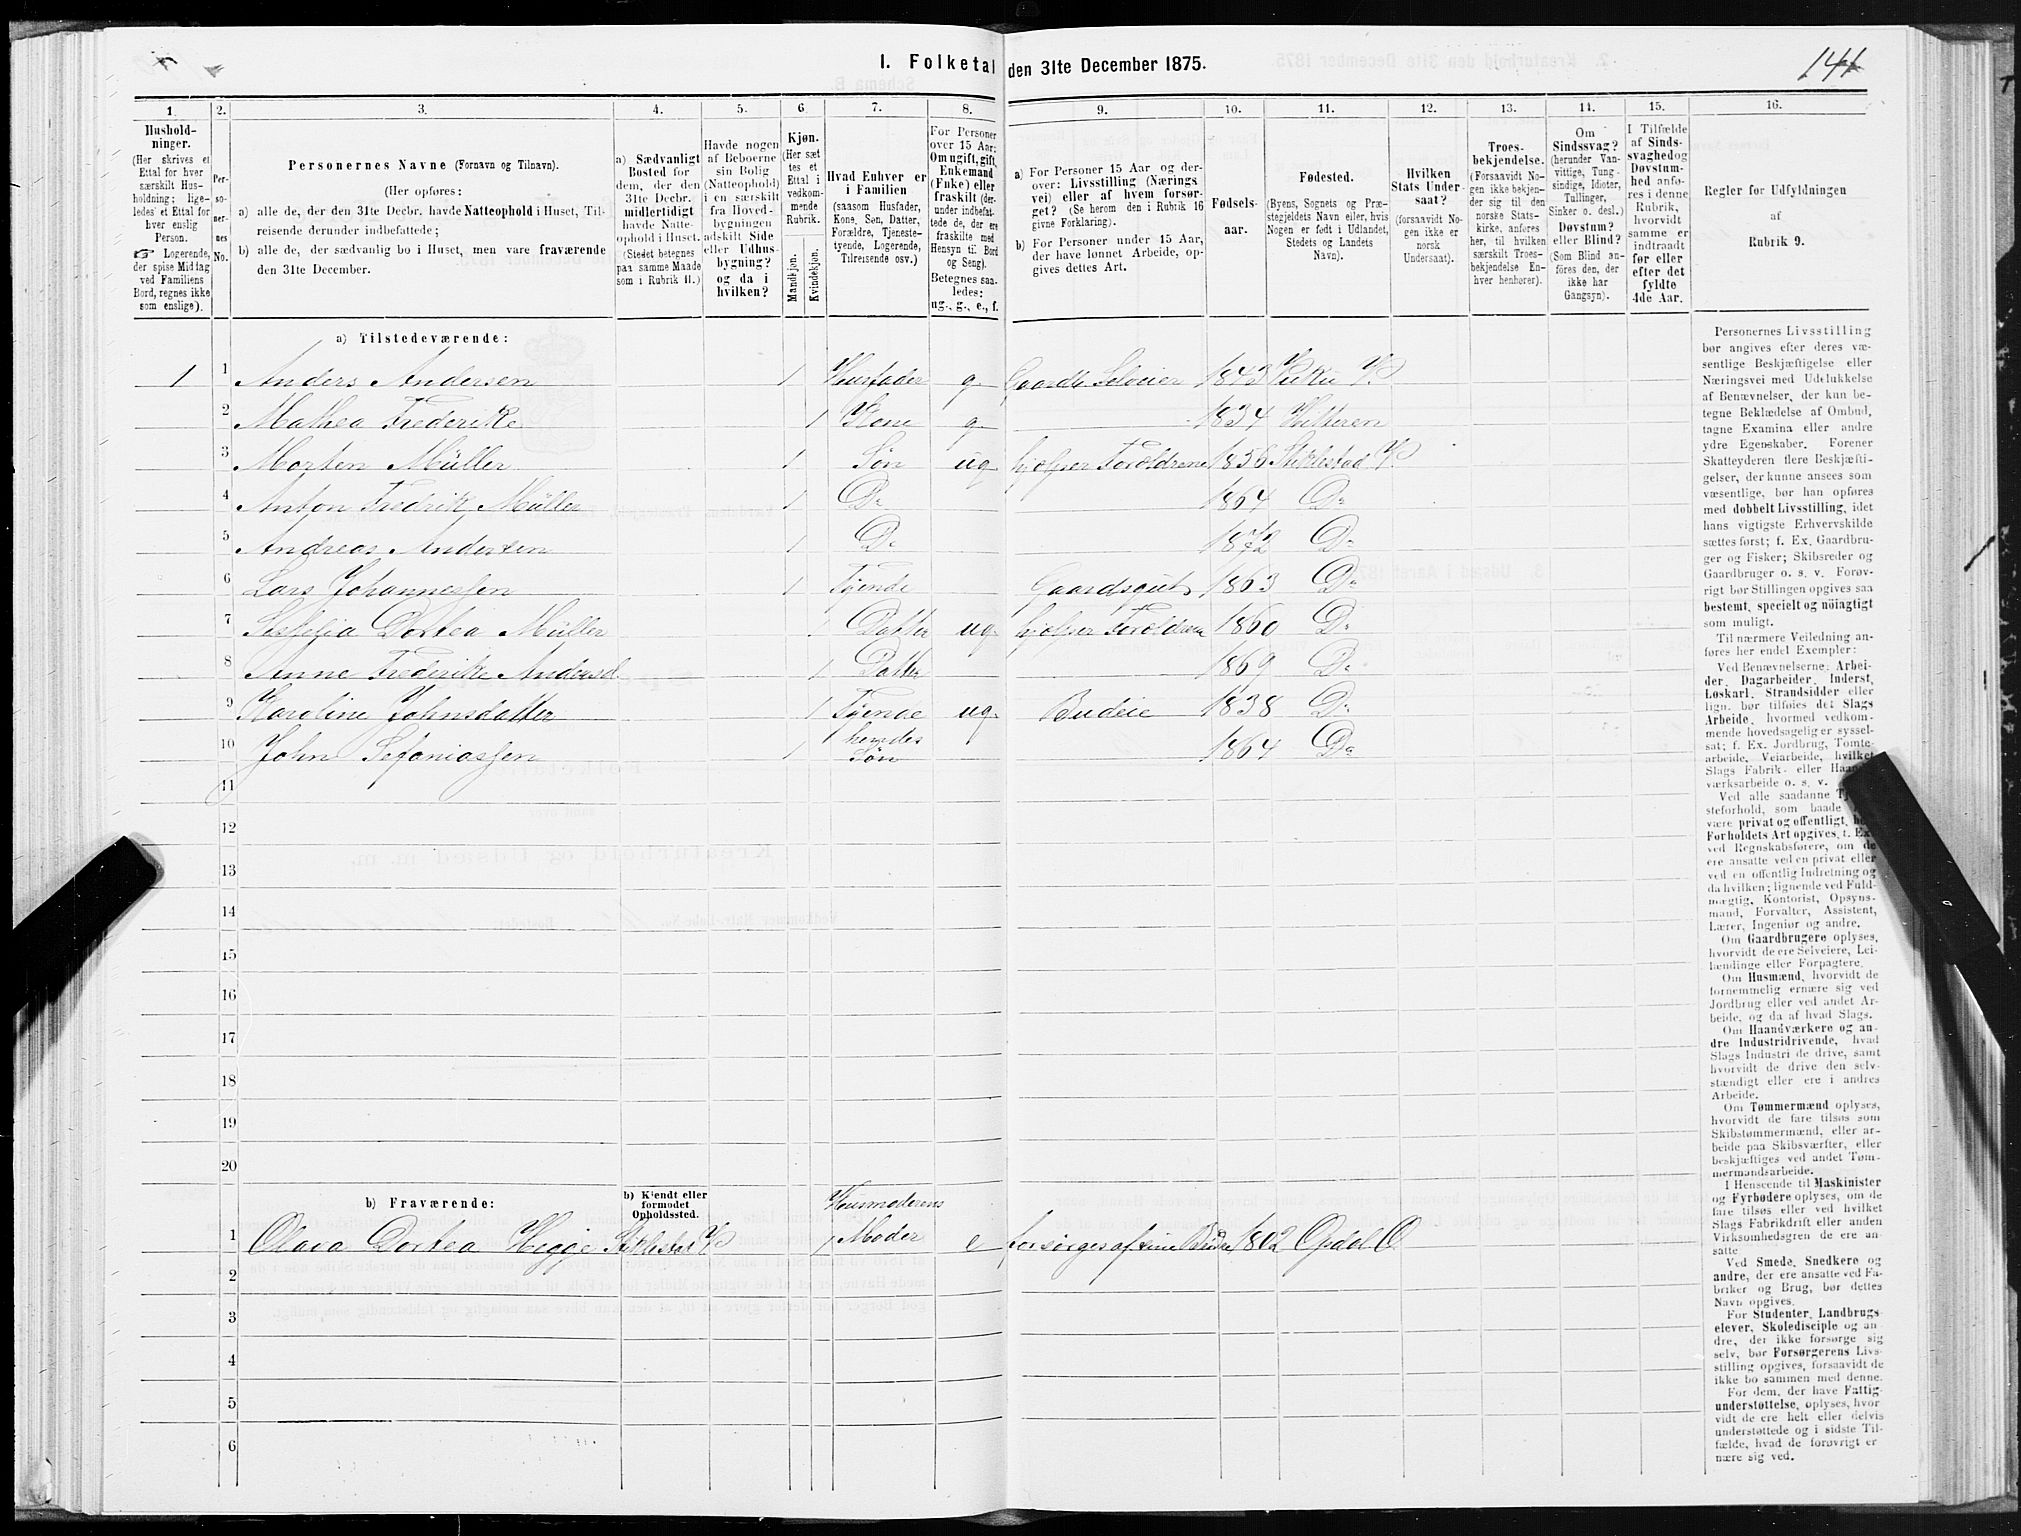 I. Folketal den 31te December 1875.
141
1. 2. 3. 4. 5. 6. 7. 8. 9. 10. 11. 12. 13. 14. 15. 16.
Hushold-
ninger.
(Her skrives et
Ettal for hver
særskilt Hus-
holdning; lige-
ledes et Ettal for
hver enslig
Person.
☞ Logerende,
der spise Middag
ved Familiens
Bord, regnes ikke
som enslige).
Per-
so-
ner-
nes
No.
Personernes Navne (Fornavn og Tilnavn).
(Her opføres:
a) alle de, der den 31te Decbr. havde Natteophold i Huset, Til-
reisende derunder indbefattede;
b) alle de, der sædvanlig bo i Huset, men vare fraværende
den 31te December.
a) Sædvanligt
Bosted for
dem, der den
31te Decbr.
midlertidigt
havde Natte-
ophold i Huset.
(Stedet betegnes
paa samme Maade
som i Rubrik 11.)
Havde nogen
af Beboerne
sin Bolig
(Natteophold)
i en særskilt
fra Hoved-
bygningen
adskilt Side
eller Udhus-
bygning?
og da i
hvilken?
Kjøn.
(Her sæt
tes et
Ettal i
vedkom-
mende
Rubrik.
Mandkjøn.
Kvindekjøn.
Hvad Enhver er
i Familien
(saasom Husfader,
Kone, Søn, Datter,
Forældre, Tjeneste-
tyende, Logerende,
Tilreisende osv.)
For Personer
over 15 Aar:
Om ugift, gift,
Enkemand
(Enke) eller
fraskilt (der-
under indbefat-
tede de, der ere
fraskilte med
Hensyn til Bord
og Seng).
Betegnes saa-
ledes:
ug., g., e., f.
a) For Personer 15 Aar og der-
over: Livsstilling (Nærings
vei) eller af hvem forsør-
get? (Se herom den i Rubrik 16
givne Forklaring).
b) For Personer under 15 Aar,
der have lønnet Arbeide, op-
gives dettes Art.
Fødsels-
aar.
Fødested.
(Byens, Sognets og Præ-
stegjeldets Navn eller, hvis
Nogen er født i Udlandet,
Stedets og Landets
Navn).
Hvilken
Stats Under-
saat?
(forsaavidt No-
gen ikke er
norsk
Undersaat).
Troes-
bekjendelse.
(Forsaavidt No-
gen ikke bekjen-
der sig til den
norske Stats-
kirke, anføres
her, til hvilken
særskilt Troes-
bekjendelse En-
hver henhører).
Om
Sindssvag?
(herunder Van-
vittige, Tung-
sindige, Idioter,
Tullinger,
Sinker o. desl.)
Døvstum?
eller Blind?
(Som Blind an-
føres den, der
ikke har
Gangsyn).
I Tilfælde
af Sinds-
svaghed og
Døvstum-
hed anfø-
res i denne
Rubrik,
hvorvidt
samme er
indtraadt
før eller
efter det
fyldte
4de Aar.
Regler for Udfyldningen
af
Rubrik 9.
a) Tilstedeværende:
1 1 Anders Andersen 1 Husfader g. Gaardb. Selveier 1843
2 Mathea Frederike 1 Kone g. 1834 Hitteren
3 Morten Müller 1 Søn ug. hjelper Foroldrene 1856 Stiklestad V.
4 Anton Fredrik Müller 1 Do 1864 Do
5 Andreas Andersen 1 Do 1872 Do
6 Lars Johannessen 1 Tjende Gaardsgut 1863 Do
7 Dortea Müller 1 Datter ug. hjelper Foroldrene 1860 Do
8 Anne Frederike Andersd. 1 Datter 1869 Do
9 Karoline Johnsdatter 1 Tjende ug. Budeie 1838 Do
10 John Sefaniassen 1 hendes Søn 1864 Do
11
12
13
14
15
16
17
18
19
20
b) Fraværende:
b) Kjendt eller
formodet
Opholdssted.
1 Olava Dortea Stiklestad V. 1 Husmoderens Moder e forsørges af sine 1802 Opdal
2
3
4
5
6
Personernes Livsstilling
bør angives efter deres væ-
sentlige Beskjæftigelse eller
Næringsvei med Udelukkelse
af Benævnelser, der kun be-
tegne Beklædelse af Ombud,
tagne Examina eller andre
ydre Egenskaber. Forener
Skatteyderen flere Beskjæfti-
gelser, der kunne ansees som
væsentlige, bør han opføres
med dobbelt Livsstilling, idet
hans vigtigste Erhvervskilde
sættes først; f. Ex. Gaardbru-
ger og Fisker; Skibsreder og
Gaardbruger o. s. v. Forøv-
rigt bør Stillingen opgives saa
bestemt, specielt og nöiagtigt
som muligt.
Til nærmere Veiledning an-
føres her endel Exempler:
Ved Benævnelserne: Arbei-
der, Dagarbeider, Inderst,
Løskarl, Strandsidder eller
lign. bør tilføies det Slags
Arbeide, hvormed vedkom-
mende hovedsagelig er syssel-
sat; f. Ex. Jordbrug, Tomte-
arbeide, Veiarbeide, hvilket
Slags Fabrik- eller
værksarbeide o. s. v.
Ved alle saadanne
steforhold, som baade
være privat og offentligt,
Forholdets Art opgives, f. Ex.
ved Regnskabsførere, om de
ere ansatte ved en privat eller
ved en offentlig Indretning og
da hvilken; lignende ved Fuld-
mægtig, Kontorist, Opsyns-
mand, Forvalter, Assistent,
Lærer, Ingeniør og andre.
Om Gaardbrugere oplyses,
hvorvidt de ere Selveiere, Lei-
lændinge eller Forpagtere.
Om Husmænd, hvorvidt de
fornemmelig ernære sig ved
Jordbrug eller ved andet Ar-
beide, og da af hvad Slags.
Om Haandværkere og an-
dre Industridrivende, hvad
Slags Industri de drive, samt
hvorvidt de drive den selv-
stændigt eller ere i andres
Arbeide.
Om Tømmermænd oplyses,
hvorvidt de fare tilsøs som
Skibstømmermænd, eller ar-
beide paa Skibsværfter, eller
beskjæftiges ved andet Tøm-
mermandsarbeide.
I Henseende til Maskinister
og Fyrbødere oplyses, om de
fare tilsøs eller ved hvilket
Slags Fabrikdrift eller anden
Virksomhedsgren de ere an-
satte
Ved Smede, Snedkere og
andre, der ere ansatte ved Fa-
briker og Brug, bør dettes
Navn opgives.
For Studenter, Landbrugs-
elever, Skoledisciple og an-
dre, der ikke forsørge sig
selv, bør Forsørgerens Livs-
stilling opgives, forsaavidt de
ikke bo sammen med denne.
For dem, der have Fattig-
understøttelse, oplyses, hvor
vidt de ere helt eller delvis
understøttede og i sidste Til-
fælde, hvad de forøvrigt er
nære sig ved.